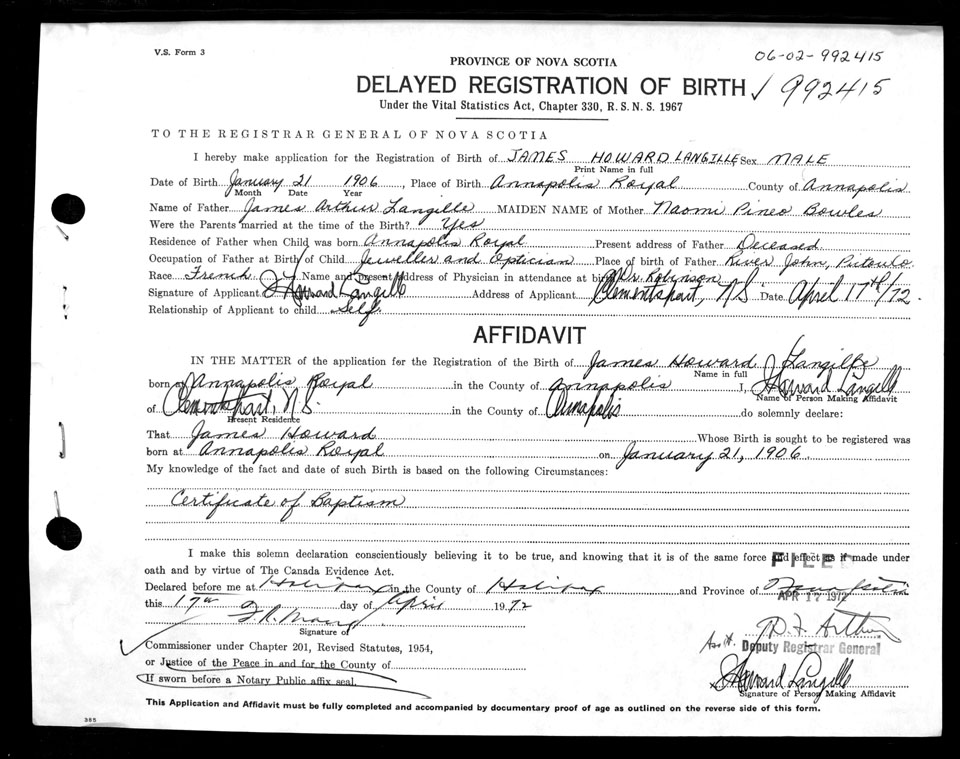 V.S. Form 3
06-02-992415
PROVINCE OF NOVA SCOTIA
DELAYED REGISTRATION OF BIRTH ✓ 992415
Under the Vital Statistics Act, Chapter 330, R.S.N.S. 1967
TO THE REGISTRAR GENERAL OF NOVA SCOTIA
I hereby make application for the Registration of Birth of JAMES HOWARD LANGILLE Sex MALE
Print Name in full
Date of Birth January 21 1906, Place of Birth Annapolis Royal County of Annapolis
Month Date Year
Name of Father James Arthur Langille MAIDEN NAME of Mother Naomi Pineo Bowles
Were the Parents married at the time of the Birth? Yes
Residence of Father when Child was born Annapolis Royal Present address of Father Deceased
Occupation of Father at Birth of Child Jeweller and Optician Place of birth of Father River John, Pictou Co.
Race French Name and present Address of Physician in attendance at birth Dr. Robinson
Signature of Applicant J Howard Langille Address of Applicant Clementsport, NS Date April 17th/72.
Relationship of Applicant to child Self.
AFFIDAVIT
IN THE MATTER of the application for the Registration of the Birth of James Howard Langille
Name in full
born at Annapolis Royal in the County of Annapolis I, J Howard Langille
Name of Person Making Affidavit
of Clementsport, NS. in the County of Annapolis do solemnly declare:
Present Residence
That James Howard Whose Birth is sought to be registered was
born at Annapolis Royal on January 21, 1906
My knowledge of the fact and date of such Birth is based on the following Circumstances:
Certificate of Baptism
I make this solemn declaration conscientiously believing it to be true, and knowing that it is of the same force and effect as if made under
FILED
oath and by virtue of The Canada Evidence Act.
Declared before me at Halifax in the County of Halifax and Province of Nova Scotia
APR 17 1972
this 17th day of April 1972
Signature of
Asst. Deputy Registrar General
✓ Commissioner under Chapter 201, Revised Statutes, 1954,
or Justice of the Peace in and for the County of
If sworn before a Notary Public affix seal.
J Howard Langille
Signature of Person Making Affidavit
This Application and Affidavit must be fully completed and accompanied by documentary proof of age as outlined on the reverse side of this form.
385